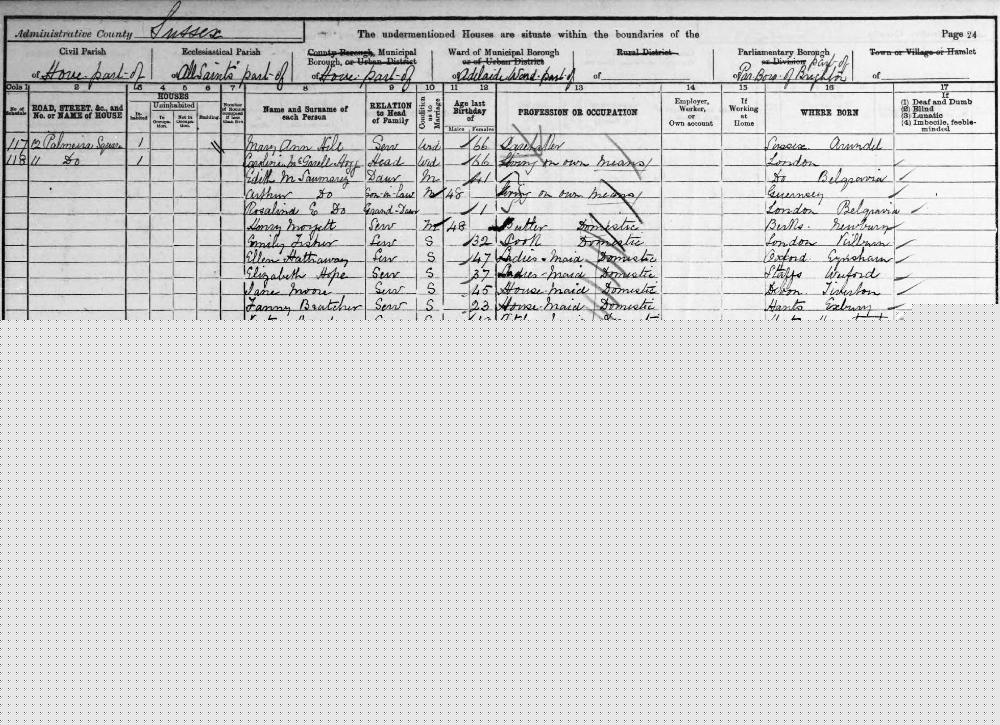 Administrative County Sussex The undermentioned Houses are situate within the boundaries of the Page 24
Civil Parish Ecclesiastical Parish County Borough, Municipal Borough, or Urban District Ward of Municipal Borough or of Urban District Rural District Parliamentary Borough or Division Town or Village or Hamlet
of Hove part of of All Saints part of of Hove part of of Adelaide Ward part of of part of Par. Boro. of Brighton of
Cols 1 2 3 4 5 6 7 8 9 10 11 12 13 14 15 16 17
No. of Schedule ROAD, STREET, &c., and No. or NAME of HOUSE HOUSES Inhabited Uninhabited In Occupation. Not in Occupation. Building. Number of Rooms occupied if less than five Name and Surname of each Person RELATION to Head of Family Condition as to Marriage Age last Birthday of Males Females PROFESSION OR OCCUPATION Employer, Worker, or Own account If Working at Home WHERE BORN If (1) Deaf and Dumb (2) Blind (3) Lunatic (4) Imbecile, feeble-minded
117 12 Palmeira Square 1 Mary Ann Hill Serv Wd 66 Sussex Arundel
118 11 Do 1 Caroline McGarell-Hogg Head Wd 66 Living on own means London
Edith M Saumarez Daur M 41 Do Belgravia
Arthur Do Son-in-law M 48 Living on own means Guernsey
Rosalind E Do Grand-Daur 1 London Belgravia
Henry Serv M 48 Butler Domestic Berks Newburn
Emily Fisher Serv S 32 Cook Domestic London Kilburn
Ellen Hathaway Serv S 47 Ladies-Maid Domestic Oxford Eynsham
Elizabeth Hope Serv S 37 Ladies-Maid Domestic Staffs Weiford
Jane Moore Serv S 45 House-Maid Domestic Devon Tiverton
Fanny Bratcher Serv S 23 House-Maid Domestic Hants Exbury